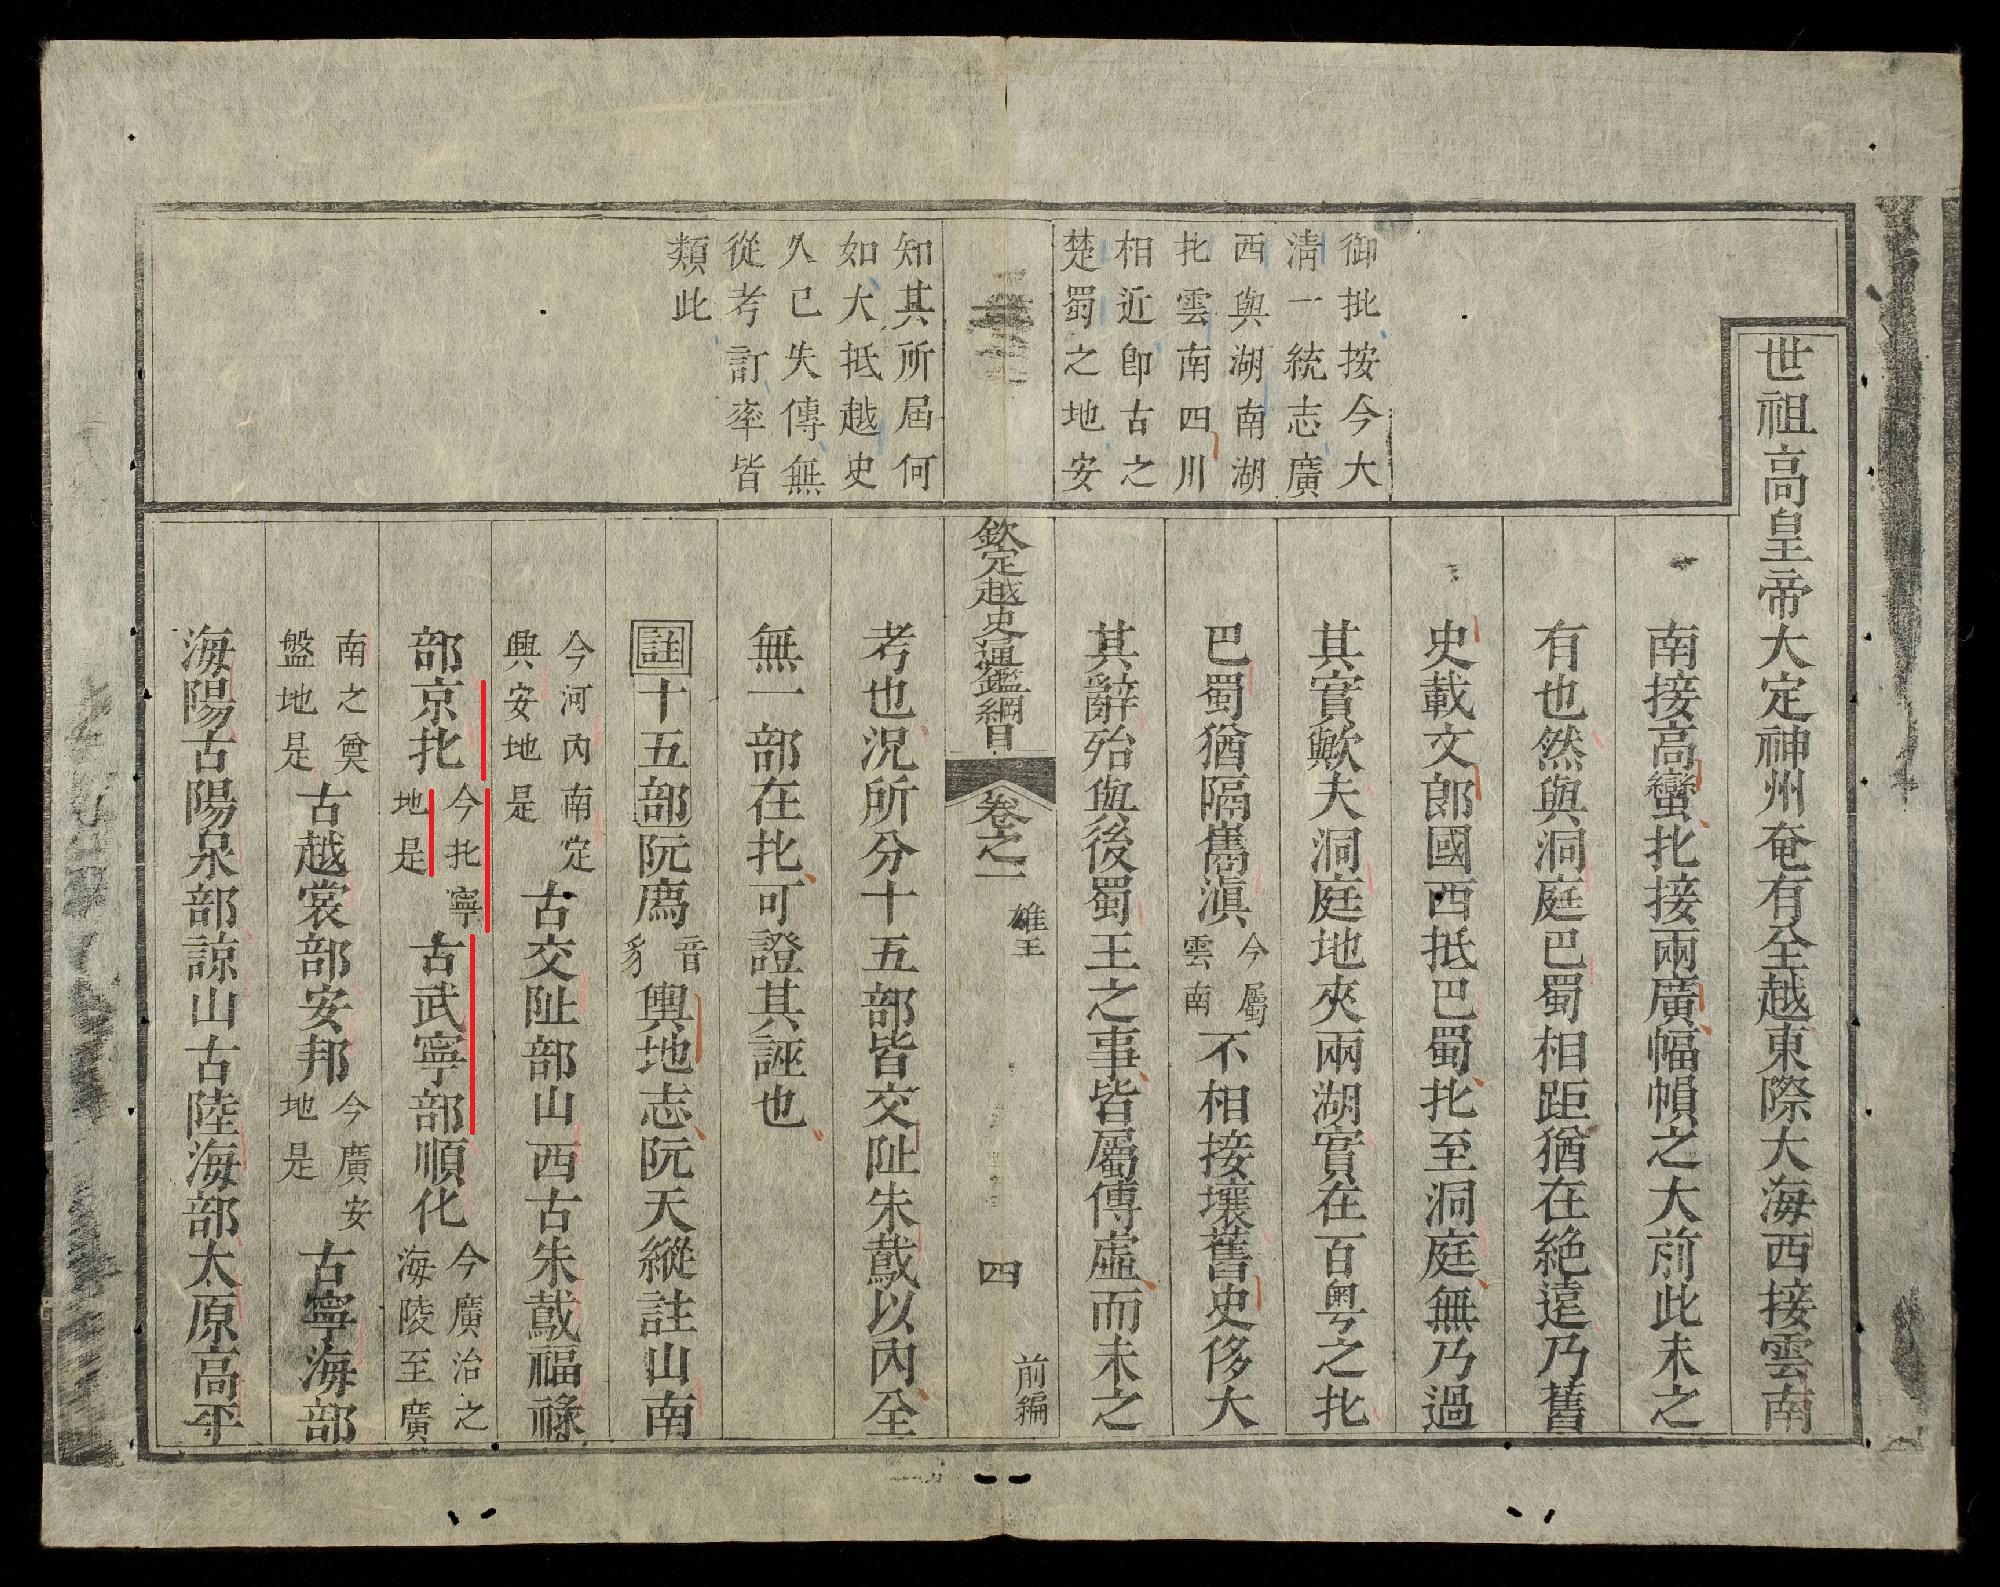 御批按今大
淸一統志廣
西與湖南湖
北雲南四川
相近卽古之
楚蜀之地安
世祖高皇帝大定神州奄有全越東際大海西接雲南
南接高蠻北接兩廣幅幀之大前此未之
有也然與洞庭巴蜀相距猶在絶遠乃舊
史載文郎國西抵巴蜀北至洞庭無乃過
其實歟夫洞庭地夾兩湖實在百粤之北
巴蜀猶隔雋滇今屬雲南不相接壤舊史侈大
其辭殆與後蜀王之事皆屬傳虛而未之
欽定越史通鑑綱目 卷之一 雄王 四 前編
知其所屆何
如大抵越史
久已失傳無
從考訂率皆
類此
考也況所分十五部皆交阯朱鳶以內全
無一部在北可證其誣也
註十五部阮廌音豸輿地志阮天縱註山南
今河內南定興安地是古交阯部山西古朱鳶福祿
部京北今北寧地是古武寧部順化今廣治之海陵至廣
南之奠盤地是古越裳部安邦今廣安地是古寧海部
海陽古陽泉部諒山古陸海部太原高平